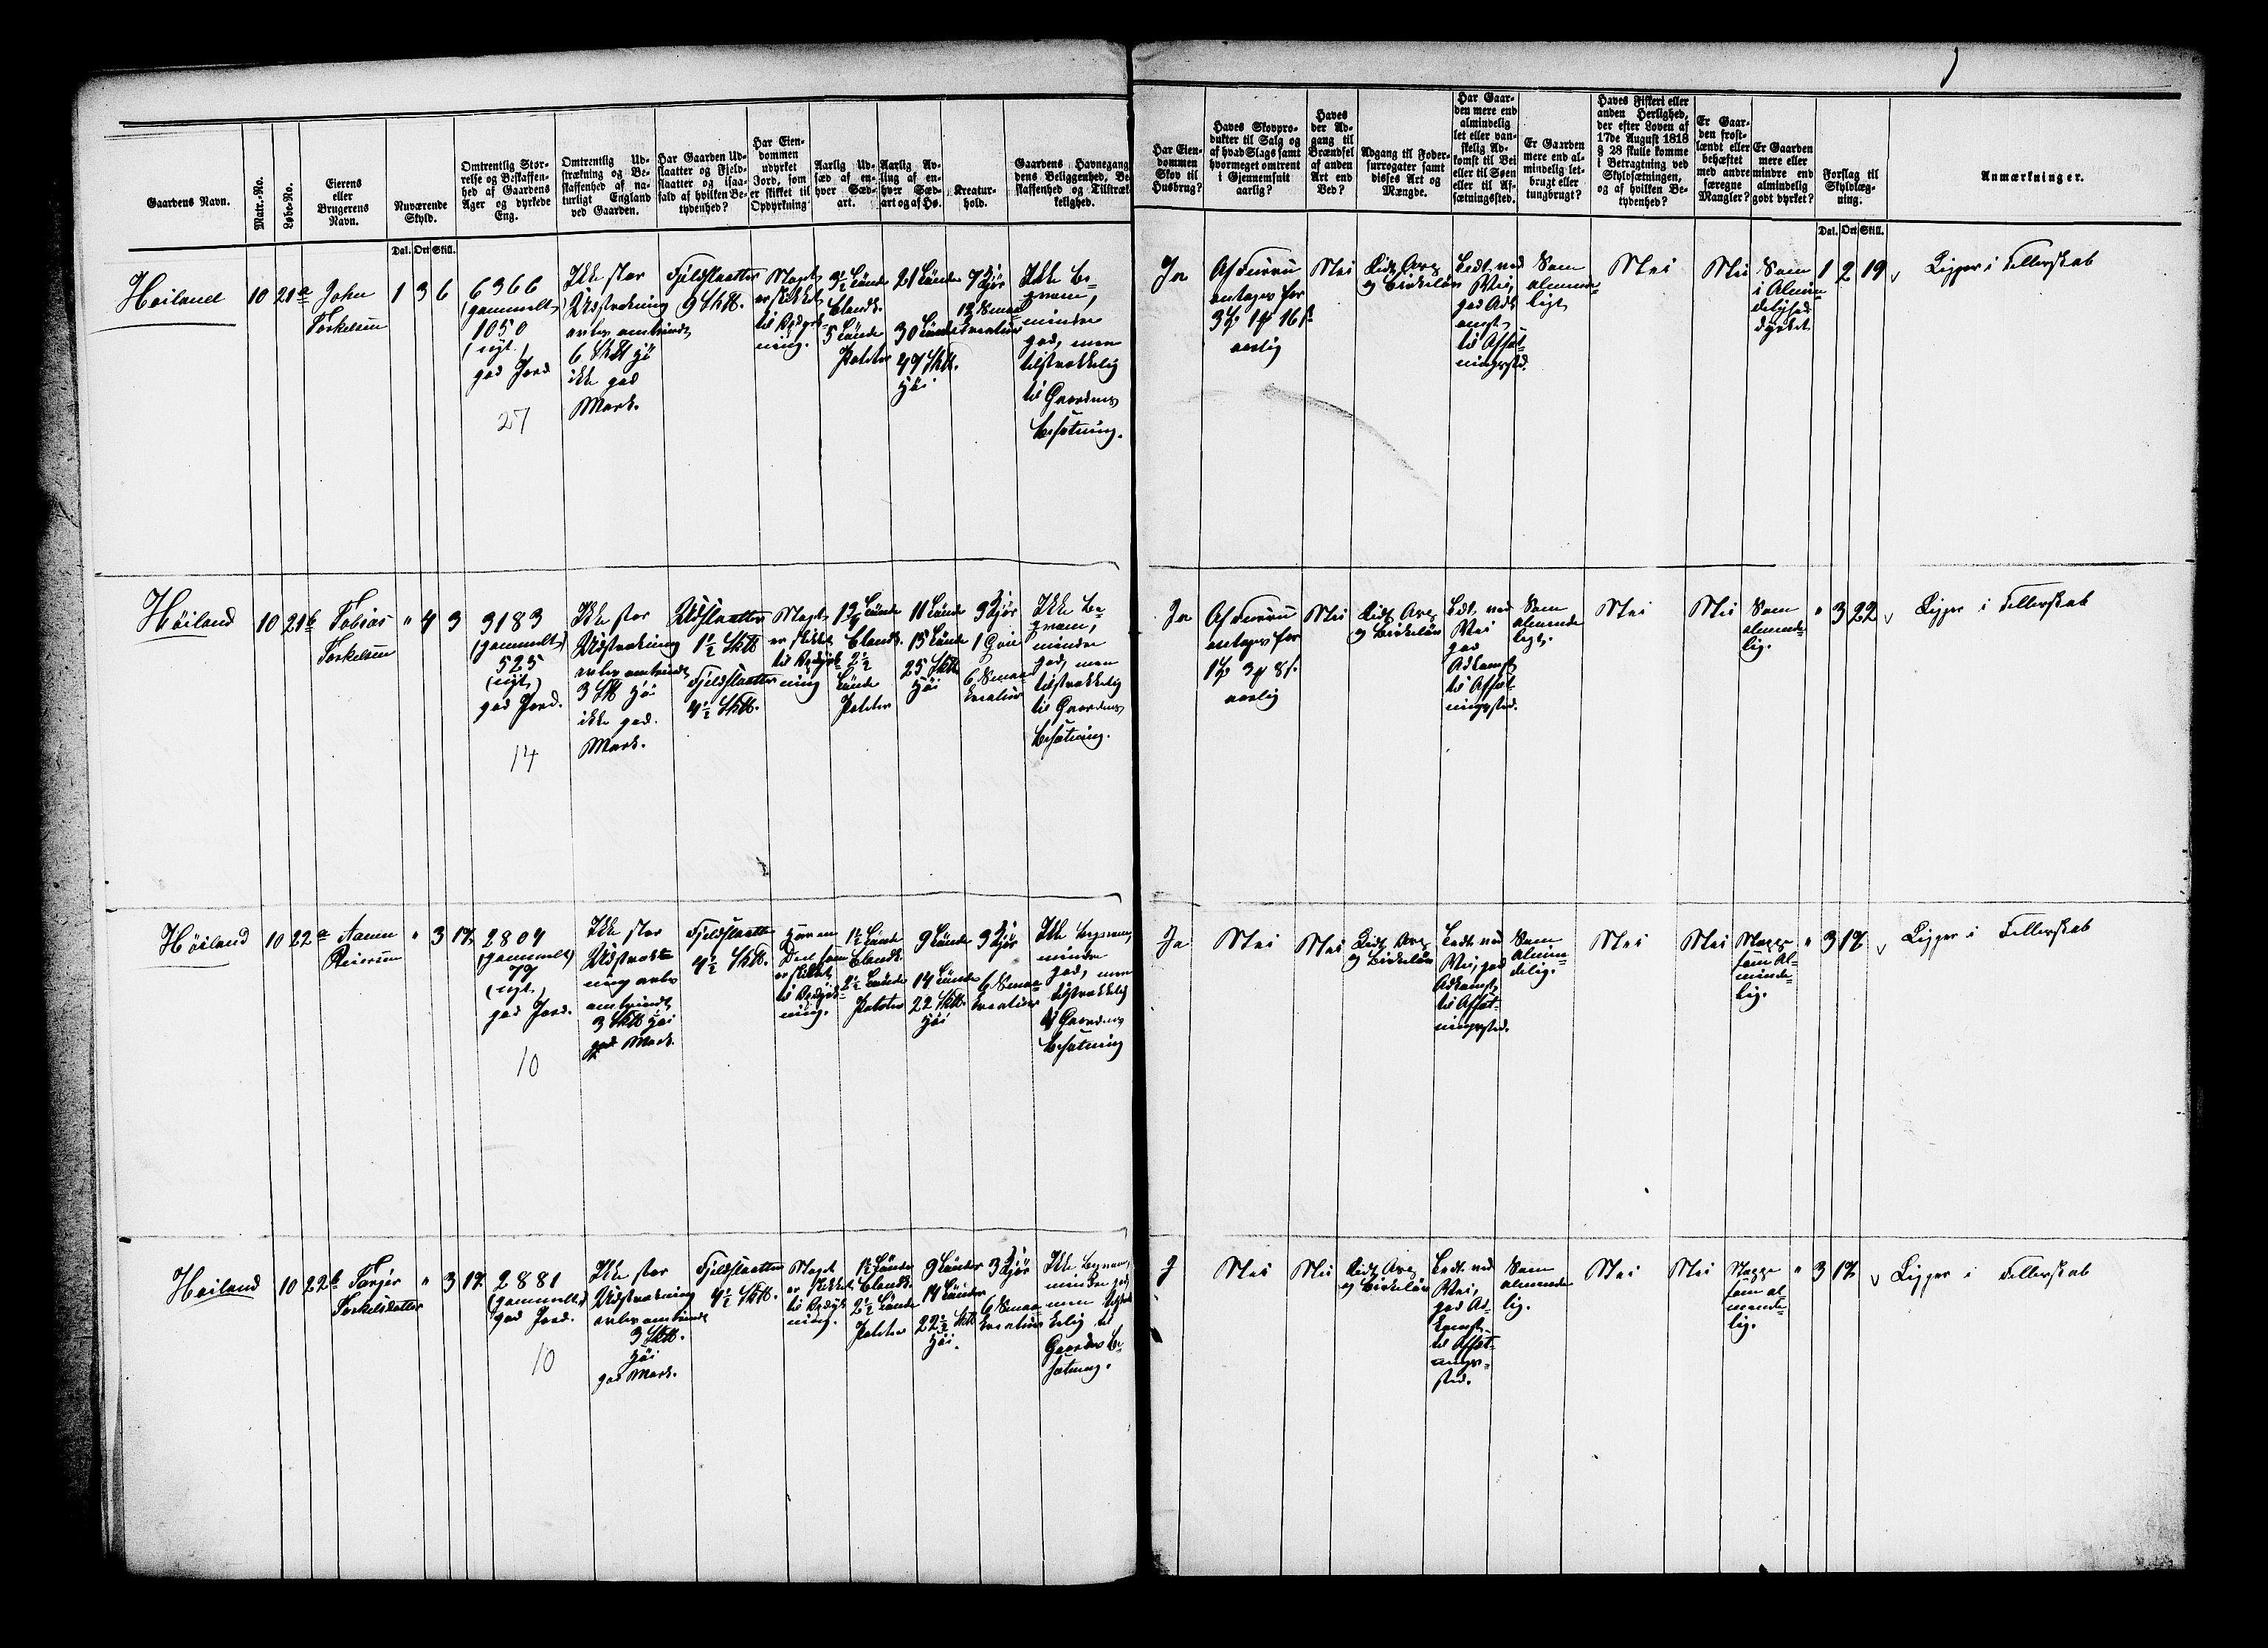 Gaardens Navn.
Matr.-No.
Løbe-No.
Eierens
eller
Brugerens
Navn.
Nuværende
Skyld.
Omtrentlig Stør-
relse og Beskaffen-
hed af Gaardens
Ager og dyrkede
Eng.
Omtrentlig Ud-
strækning og Be-
skaffenhed af na-
turligt England
ved Gaarden.
Har Gaarden Ud-
slaatter og Field-
slaatter og isaa-
fald af hvilken Be-
tydenhed?
Har Eien-
dommen
udyrket
Jord, som
er skikket til
Opdyrkning
Aarlig Ud-
sæd af en-
hver Sæd-
art.
Aarlig Av-
ling af en-
hver Sæd-
art og af Hø.
Kreatur-
hold.
Gaardens Havnegang
dens Beliggenhed, Be-
skaffenhed og Tilstræk-
kelighed.
Har Eien-
dommen
Skov til
Husbrug?
Haves Skovpro-
dukter til Salg og
af hvad Slags samt
hvormeget omtrent
i Gjennemsnit
aarlig?
Haves
der Ad-
gang til
Brændsel
af anden
Art end
Ved?
Adgang til Foder-
surrogater samt
disses Art og
Mængde.
Har Gaar-
den mere end
almindelig
let eller van-
skelig Ad-
komst til Vei
eller til Søen
eller til Af-
sætningssted.
Er Gaarden
mere end al-
mindelig let-
brugt eller
tungbrugt?
Haves Fiskeri eller
anden Herlighed,
der efter Loven af
17de August 1818
§ 28 skulle komme
i Betragtning ved
Skyldsætningen,
og af hvilken Be-
tydenhed?
Er Gaar-
den frost-
lændt eller
behæftet
med andre
særegne
Mangler?
Er Gaarden
mere eller
mindre end
almindelig
godt dyrket?
Forslag til
Skyldlæg-
ning.
Anmærkninger.
Dal. Ort Skill.
Dal. Ort Skill.
Høiland
10
21a
John
Torkelsen
1 3 6
6366
(gammelt)
1050
(nyt)
god Jord
27
Ikke stor
Udstrækning
avler omtrendt
6 Sk℔ Hø
ikke god
Mark.
Fjeldslaatter
9 Sk℔.
Noget
er skikket
til Opdyrk-
ning.
3½ Tønde
Blandk.
5 Tønde
Poteter
21 Tønde
30 Tønde
49 Sk℔.
Høi
7 Kjør
12 Smaa
Kreature
Ikke be-
qvem,
mindre
god, men
tilstrækkelig
til Gaardens
Besætning.
Ja
Af Furru
antages for
3 1 16
aarlig
Nei
Lidt Aves
og Birkeløv
Let ved
Vei,
god Adk
omst
til Afsæt-
ningssted.
Som
alminde-
ligt
Nei
Nei
Som
i Almin-
delighed
dyrket
1 2 19
Ligger i Fellerskab
Høiland
10
21b
Tobias
Torkelsen
" 4 3
3183
(gammelt)
525
(nyt)
god Jord.
14
Ikke stor
Udstrækning
avler omtrendt
3 Sk℔ Høi
ikke god.
Mark.
Udslaatter
1½ Sk℔
Fjeldslaatter
4½ Sk℔.
Noget
er skikket
til Opdyrk-
ning
1¾ Tønde
Blandk.
2½
Tønde
Poteter
11 Tønde
15 Tønde
25 Sk℔
Høi
3 Kjør
1 Qvie
6 Smaa
Kreature
Ikke be-
qvem,
mindre
god, men
tilstrækkelig
til Gaardens
Besætning.
Ja
Af Furru
antages for
1 3 8
aarlig
Nei
Lidt Aves
og Birkeløv
Let ved
Vei
god
Adkomst
til Afsæt-
ningssted.
Som
alminde
ligt.
Nei
Nei
Som
alminde-
lig.
" 3 22
Ligger i Fellerskab
Høiland
10
22a
Aanen
Reiersen
" 3 17
2804
(gammelt)
79
(nyt)
god Jord.
10
Ikke stor
Udstræk-
ning avler
omtrendt
3 Sk℔ Høi
god Mark.
Fjeldslaatter
4½ Sk℔.
Har en
Deel som
er skikket
til Opdyrk-
ning.
1½ Tønde
Blandk.
2½ Tønde
Poteter
9 Tønde
14 Tønde
22 Sk℔.
Høi
3 Kjør
6 Smaa-
kreature
Ikke beqvem,
mindre
god, men
tilstrækkelig
til Gaardens
Besætning
Ja
Nei
Nei
Lidt Aves
og Birkeløv
Let ved
Vei, god
Adkomst
til Afsæt-
ningssted.
Som
Almin-
delig.
Nei
Nei
Nogge
som Al-
minde-
lig.
" 3 17
Ligger i Fellerskab
Høiland
10
22b
Torger
Torkelsdatter
" 3 17
2881
(gammelt)
god Jord.
10
Ikke stor
Udstrækning
avler omtrendt
3 Sk℔.
Høi
god Mark.
Fjeldslaatter
4½ Sk℔.
Noget
er skikket
til Opdyrk
ning.
1½ Tønde
Blandk.
2½ Tønde
Poteter
9 Tønder
14 Tønder
22½ Sk℔
Høi.
3 Kjør
6 Smaa
Kreature
Ikke beqvem,
mindre god
men tilstræk
kelig til
Gaardens Be-
sætning.
J
Nei
Nei
Lidt Aves
og Birkeløv
Let ved
Vei,
god Ad-
komst
til Afsæt-
nings-
sted.
Som
alminde
lig.
Nei
Nei
Nogge
som al-
minde-
lig.
" 3 17
Ligger i Fellerskab